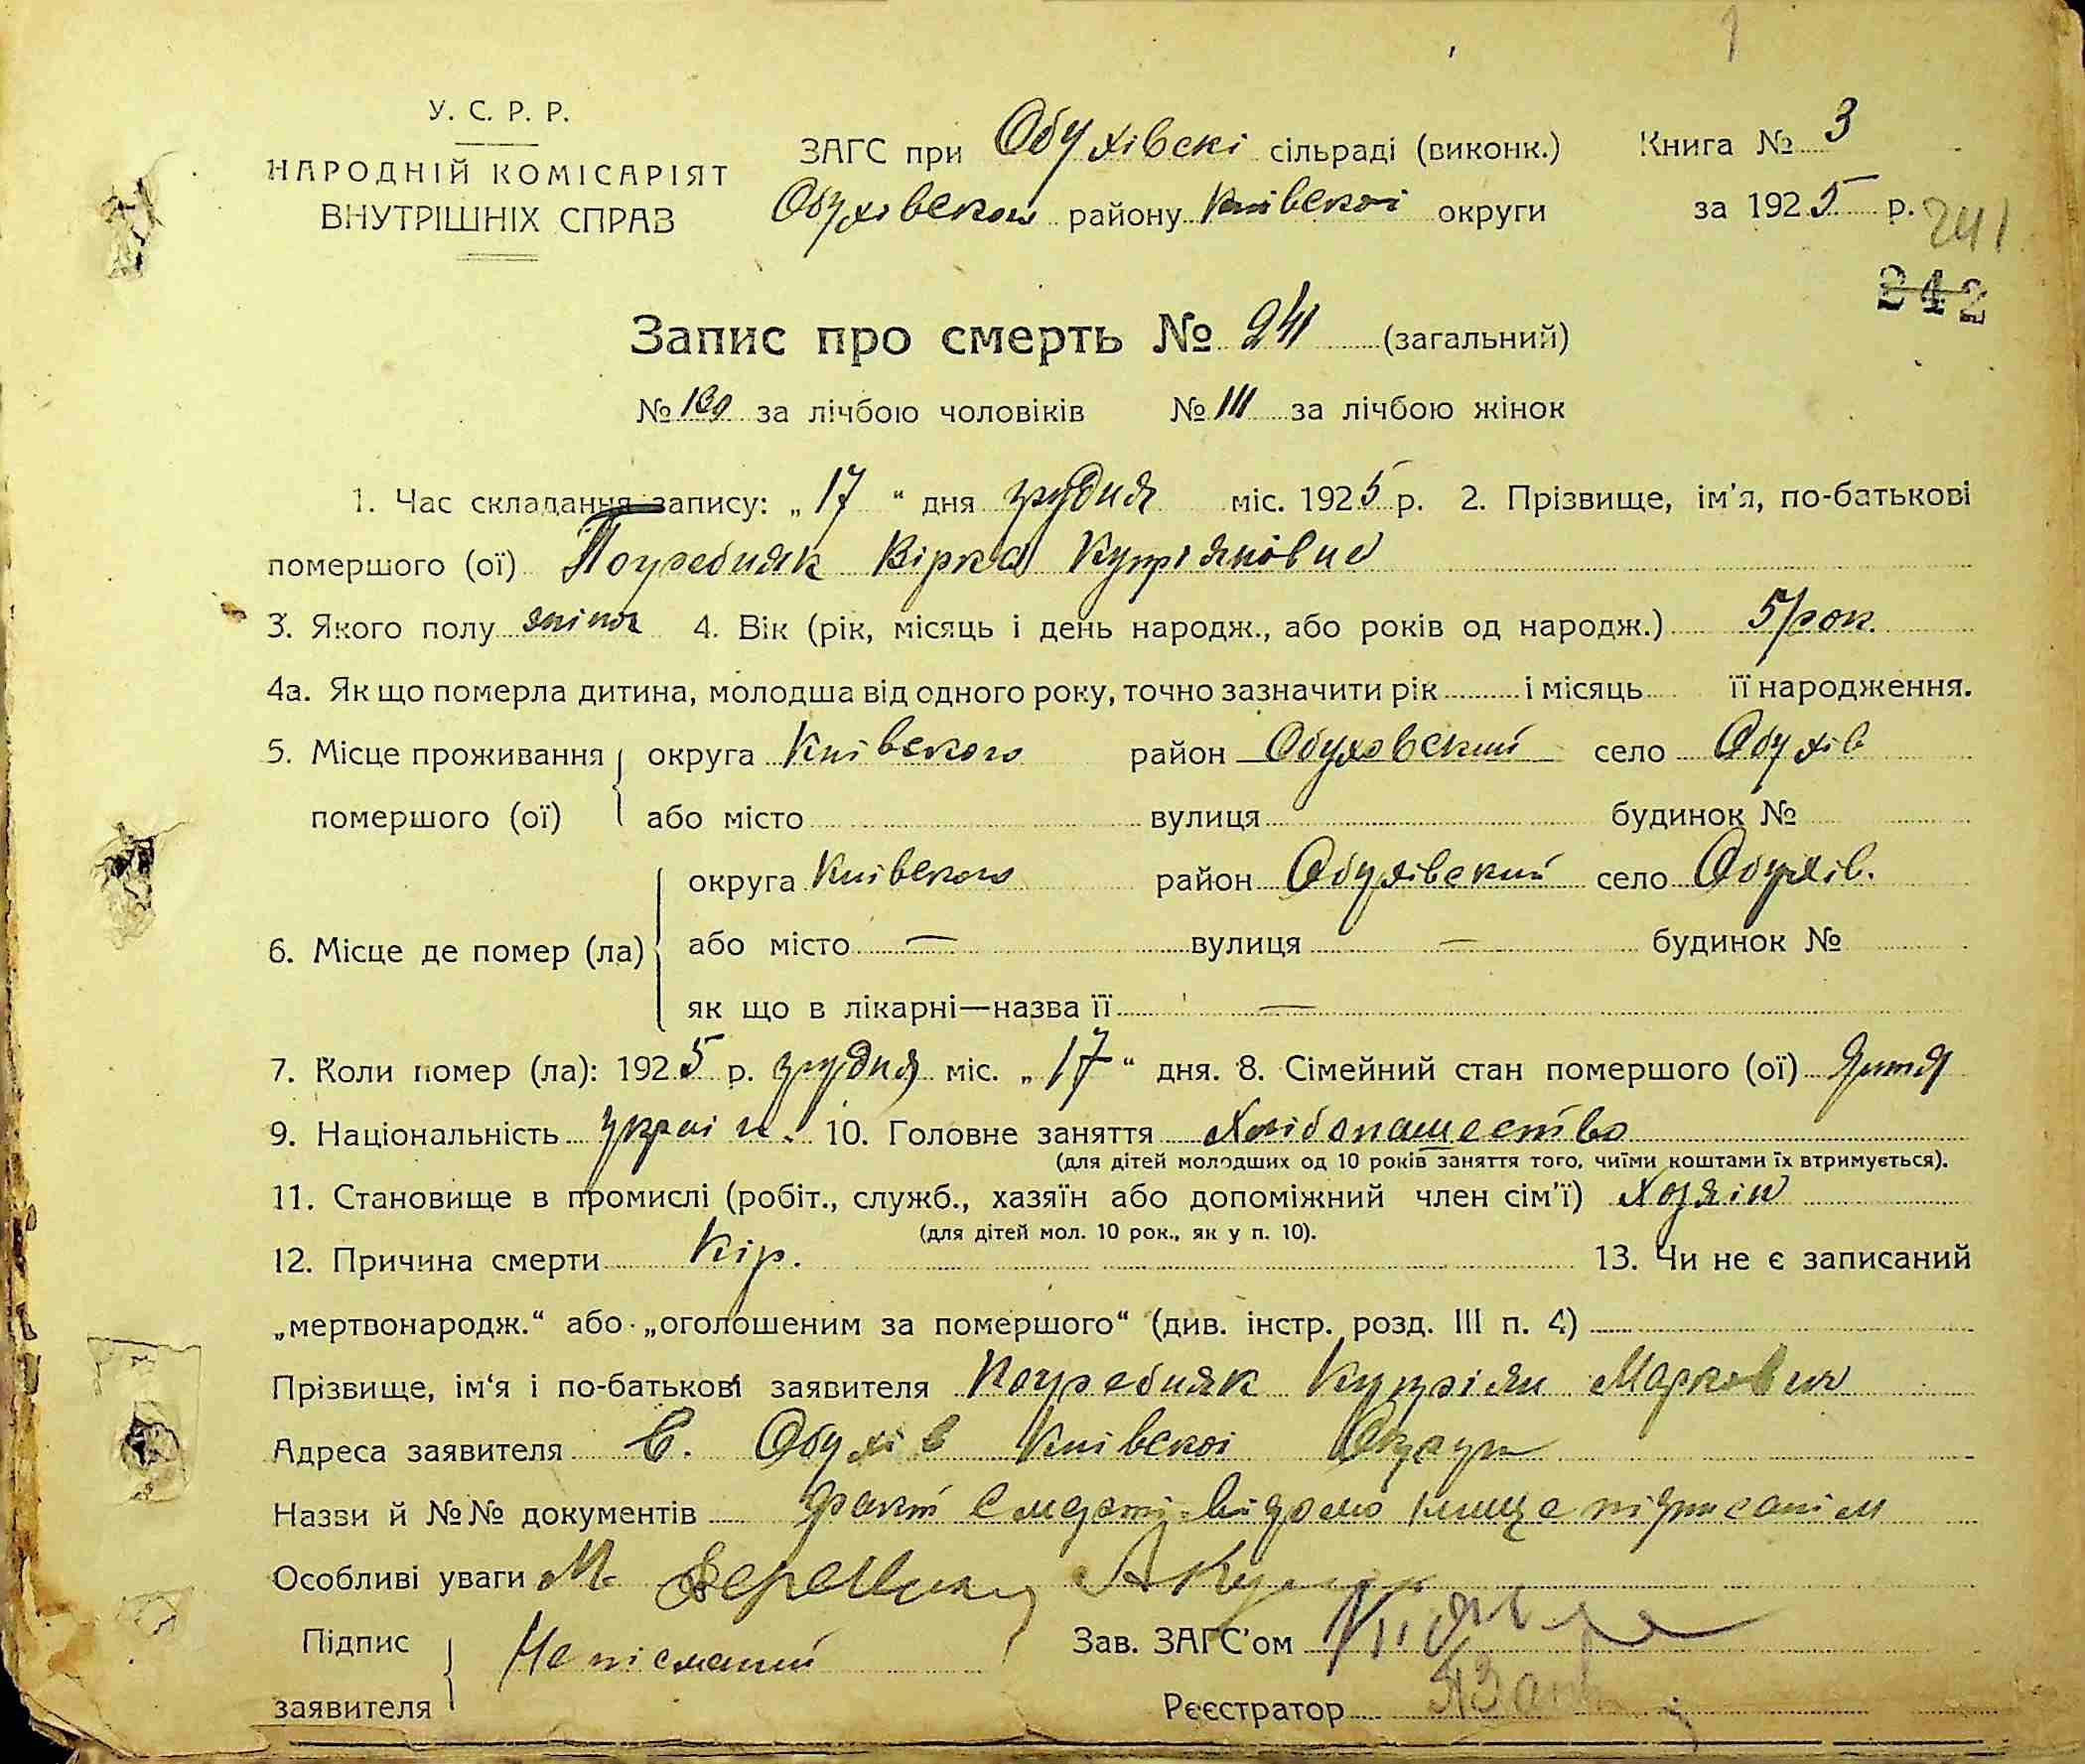 1
У. С. Р. Р.
НАРОДНІЙ КОМІСАРІЯТ
ВНУТРІШНІХ СПРАВ
ЗАГС при Обухівскі сільраді (виконк.)
Обухівского району Київскоі округи
Книга № 3
за 1925 р.
241
242
Запис про смерть № 241 (загальний)
№ 130 за лічбою чоловіків № 111 за лічбою жінок
1. Час складання запису: „17“ дня грудня міс. 1925 р. 2. Прізвище, ім'я, по-батькові
помершого (ої) Погребняк Вірка Купріяновна
3. Якого полу жіноч 4. Вік (рік, місяць і день народж., або років од народж.) 5 рок.
4а. Як що померла дитина, молодша від одного року, точно зазначити рік і місяць її народження.
5. Місце проживання округа Київского район Обуховский село Обухів
помершого (ої) або місто вулиця будинок №
округа Київского район Обухівский село Обухів.
6. Місце де помер (ла) або місто — вулиця — будинок №
як що в лікарні—назва її —
7. Коли помер (ла): 1925 р. грудня міс. „17“ дня. 8. Сімейний стан помершого (ої) дитя
9. Національність украін. 10. Головне заняття Хлібопашество
(для дітей молодших од 10 років заняття того, чиїми коштами їх втримується).
11. Становище в промислі (робіт., служб., хазяїн або допоміжний член сім'ї) Хозяін
(для дітей мол. 10 рок., як у п. 10).
12. Причина смерти Кір. 13. Чи не є записаний
„мертвонародж.“ або „оголошеним за помершого“ (див. інстр. розд. III п. 4)
Прізвище, ім'я і по-батькові заявителя Погребняк Купріян Маркович
Адреса заявителя С. Обухів Київскоі Округи
Назви й №№ документів факт смерті відомо нище підписанім
Особливі уваги М.
Підпис заявителя Неписмений
Зав. ЗАГС'ом
Реєстратор